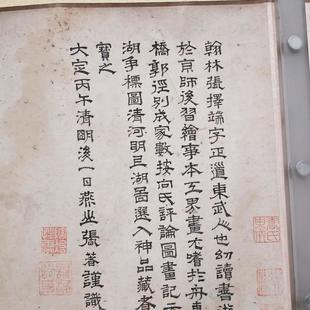 翰林張擇端字正道東武人也幼讀書游
於京師後習繪事本工界畫尤嗜於舟車
橋郭徑別成家數按向氏評論圖畫記云
湖爭標圖清河明上湖圖選入神品藏者
寶之
大定丙午清明後一日燕山張著謹識